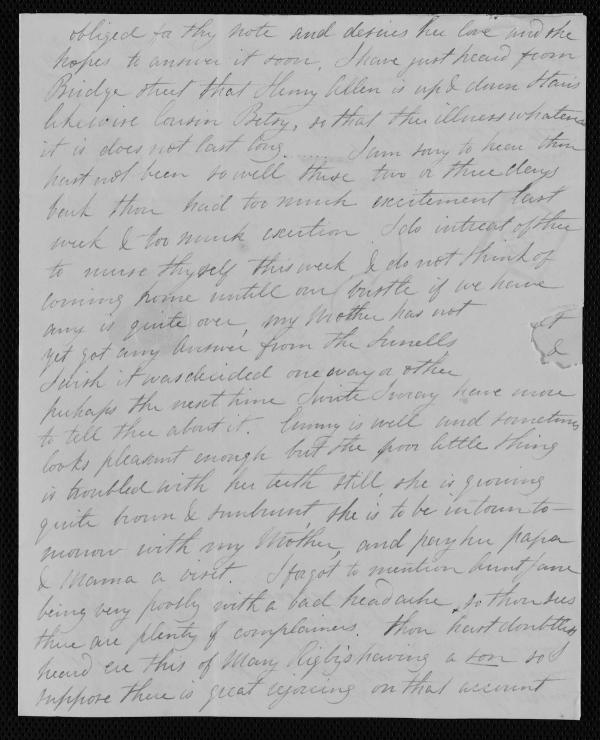 obliged for thy note and desires her love and she
hopes to answer it soon. I have just heard from
Bridge street that Henry Allen is up & down stairs
likewise Cousin Betsy, so that the illness whatever
it is does not last long. I am sorry to hear thou
hast not been so well these two or three days
back thou had too much excitement last
week & too much exertion I do intreat of thee
to nurse thyself this week & do not think of
coming home untill our bustle if we have
any is quite over, my Mother has not
yet got any answer from the
I wish it was decided one way or other
perhaps the next time I write I may have more
to tell thee about it. Emmy is well and sometimes
looks pleasant enough but the poor little thing
is troubled with her teeth still, she is growing
quite brown & sunburnt, she is to be in town to-
morrow with my Mother, and pay her papa
& Mama a visit. I forgot to mention Aunt Jane
being very poorly with a bad headache, so thou sees
there are plenty of complainers. Thou hast doubtless
heard ere this of Mary Rigby's having a son so I
suppose there is great rejoicing on that account